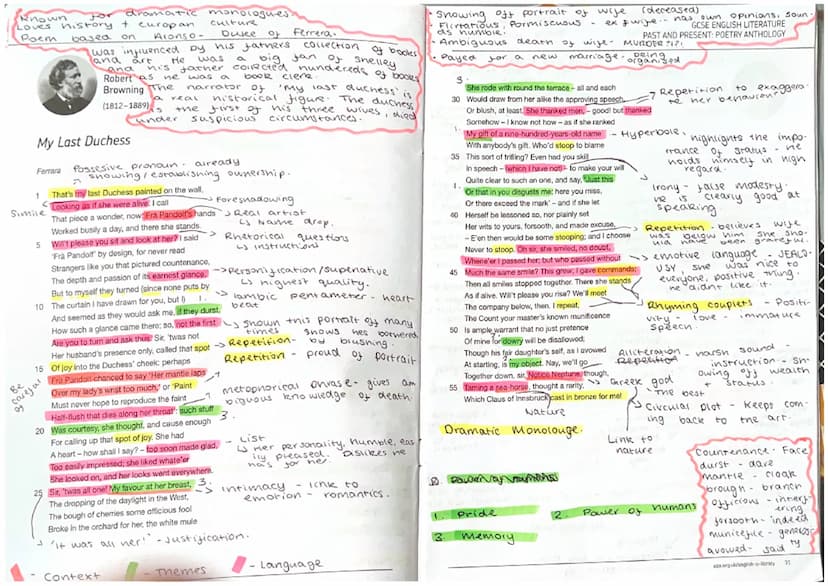 Known for dramatic monologues.
Loves history + europan culture.
Poem based on Alonso - Duke of Ferrera.
was influenced by his fathers collection of books
and art. He was a big fan of Shelley
and his father collected hundereds of books
as he was a book clerk.
The narrator of 'my last duchess' is
a real historical figure. The duchess
is the first of his three wives, died
under suspicious circumstances.
Robert
Browning
(1812–1889)
My Last Duchess
Ferrara
Possesive pronoun - already
showing/establishing ownership.
1 That's my last Duchess painted on the wall,
Looking as if she were alive. I call
Foreshadowing
Simile
That piece a wonder, now: Frà Pandolf's hands
Real artist
Name drop.
Worked busily a day, and there she stands.
5 Will't please you sit and look at her? I said
Rhetorical questions
instruction
'Frà Pandolf' by design, for never read
Strangers like you that pictured countenance,
The depth and passion of its earnest glance,
Personification/superlative
highest quality.
But to myself they turned (since none puts by
10 The curtain I have drawn for you, but I) 1.
Iambic pentameter - heart
beat
And seemed as they would ask me, if they durst,
How such a glance came there; so, not the first
shown this portrait of many
times shows hes bothered
Are you to turn and ask thus. Sir, 'twas not
Her husband's presence only, called that spot
Repetition - by blushing.
15 Of joy into the Duchess' cheek: perhaps
Repetition - proud of portrait
Frà Pandolf chanced to say 'Her mantle laps
Over my lady's wrist too much,' or 'Paint
Must never hope to reproduce the faint
metaphorical phrase - gives am
biguous knowledge of death
Half-flush that dies along her throat': such stuff
3.
20 Was courtesy, she thought, and cause enough
For calling up that spot of joy. She had
A heart – how shall I say? – too soon made glad,
List
Her personality, humble, eas
ily pleased.
Too easily impressed; she liked whate'er
She looked on, and her looks went everywhere.
25 Sir, 'twas all one! My favour at her breast, 3.
Intimacy - link to
emotion - romantics.
The dropping of the daylight in the West,
The bough of cherries some officious fool
Broke in the orchard for her, the white mule
'It was all her!' - Justification.
Context - Themes - Language
Showing off portrait of wife (deceased)
GCSE ENGLISH LITERATURE
PAST AND PRESENT: POETRY ANTHOLOGY
Ambiguous death of wife - MURDER?!?!
Payed for a new marriage - being
organized
3.
She rode with round the terrace – all and each
30 Would draw from her alike the approving speech,
Repetition to exaggera
te her behaviour
Or blush, at least. She thanked men, – good! but thanked
Somehow – I know not how – as if she ranked
1.
My gift of a nine-hundred-years-old name
Hyperbole, highlights the impo
rtance of status - he
holds himself in high
regard.
With anybody's gift. Who'd stoop to blame
35 This sort of trifling? Even had you skill
In speech – (which I have not) – to make your will
Quite clear to such an one, and say, 'Just this
1.
Irony - false modesty.
He is clearly good at
speaking
Or that in you disgusts me; here you miss,
Or there exceed the mark' – and if she let
40 Herself be lessoned so, nor plainly set
Her wits to yours, forsooth, and made excuse,
Repetition - believes wife
was below him she sho
uld have been grateful.
– E'en then would be some stooping; and I choose
Never to stoop. Oh sir, she smiled, no doubt,
Whene'er I passed her; but who passed without
emotive language - JEALO
USY, she was nice to
everyone, positive thing.
He didnt like it.
45 Much the same smile? This grew; I gave commands;
Then all smiles stopped together. There she stands
As if alive. Will't please you rise? We'll meet
The company below, then. I repeat,
Rhyming couplets - Positi
vity - love - immature
speech.
The Count your master's known munificence
50 Is ample warrant that no just pretence
2.
Of mine for dowry will be disallowed;
Though his fair daughter's self, as I avowed
Alliteration - harsh sound -
Repetition
instruction - sh
owing off wealth
+ status.
At starting, is my object. Nay, we'll go
Together down, sir. Notice Neptune, though,
Greek god
The best
55 Taming a sea-horse, thought a rarity,
Which Claus of Innsbruck cast in bronze for me!
Circular plot - keeps com
ing back to the art.
Nature
Link to
nature
Dramatic Monolouge.
1. Pride
2. Power of humans
3. Memory
Countenance - Face
durst - dare
mantle - cloak
brough - branch
officious - interf
ering
forsooth - indeed
munificence - generosi
ty
avowed - said
31